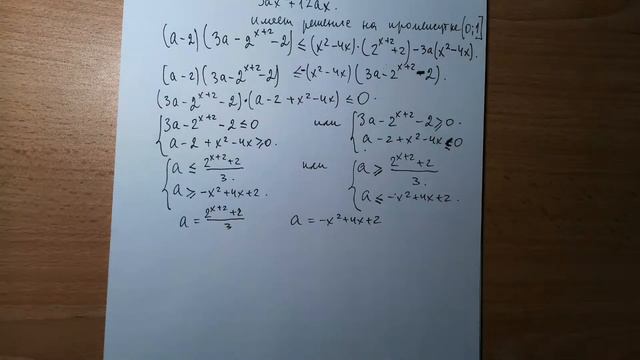 3ax² + 12ax.
имеет решение на промежутке [0;1]
(a-2)(3a-2^{x+2}-2) ≤ (x²-4x)·(2^{x+2}+2)-3a(x²-4x).
(a-2)(3a-2^{x+2}-2) ≤ -(x²-4x)(3a-2^{x+2}-2).
(3a-2^{x+2}-2)·(a-2+x²-4x) ≤ 0.
{ 3a-2^{x+2}-2 ≤ 0 или { 3a-2^{x+2}-2 ≥ 0.
a-2+x²-4x ≥ 0. a-2+x²-4x ≤ 0
{ a ≤ \frac{2^{x+2}+2}{3}. или { a ≥ \frac{2^{x+2}+2}{3}.
a ≥ -x²+4x+2. a ≤ -x²+4x+2.
a = \frac{2^{x+2}+2}{3} a = -x²+4x+2